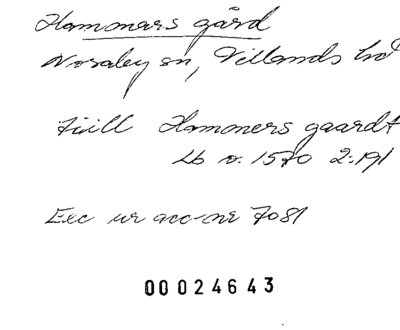 Hammars gård
Nosaby sn, Villands hd
till Hammers gaardt
Lb o. 1570 2:191
Exc ur acc-nr 7081
00024643